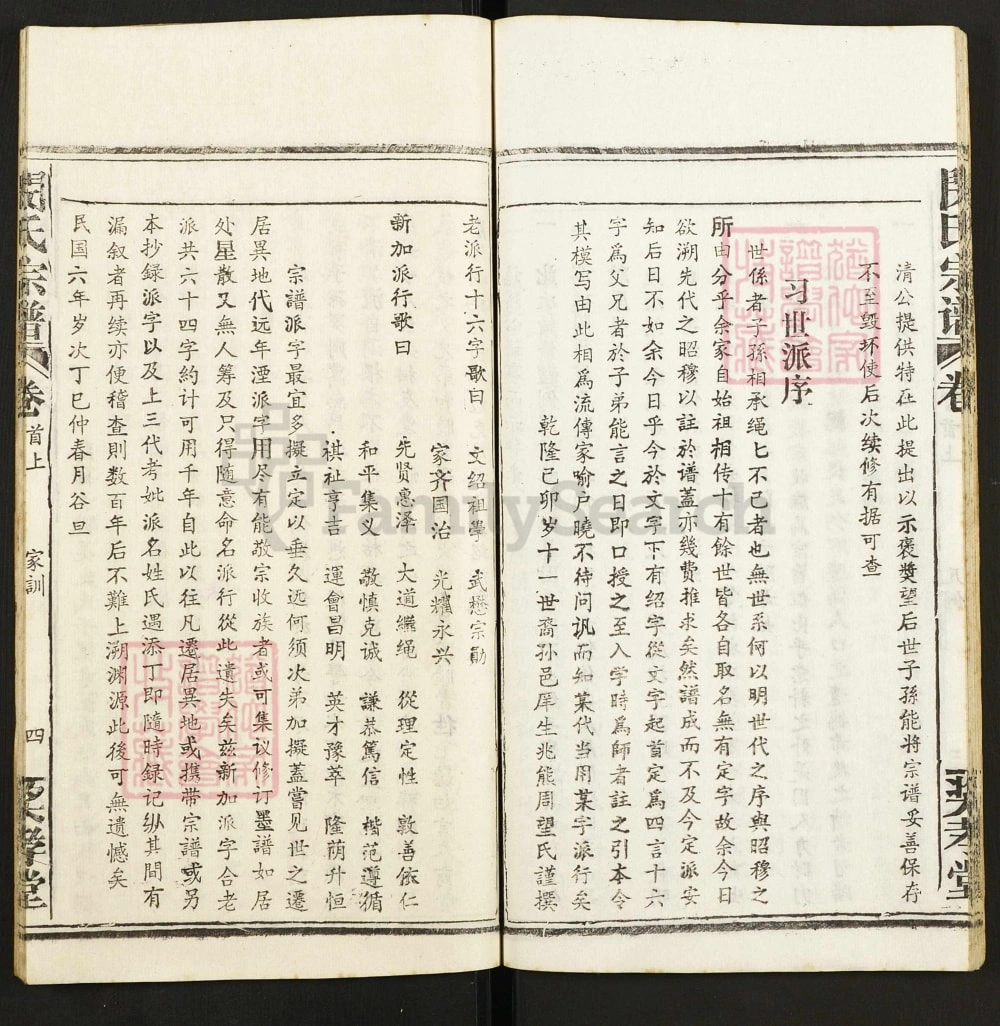 清公提供特在此提出以示褒奬望后世子孫能将宗谱妥善保存
不至毀坏使后次续修有据可查
习世派序
世係者子孫相承绳匕不己者也無世系何以明世代之序與昭穆之
所由分乎余家自始祖相传十有餘世皆各自取名無有定字故余今日
欲溯先代之昭穆以註於谱蓋亦幾费推求矣然譜成而不及今定派安
知后日不如余今日乎今於文字下有绍字從文字起首定爲四言十六
字爲父兄者於子弟能言之日即口授之至入学時爲師者註之引本令
其模写由此相爲流傳家喻户曉不待问讯而知某代当用某字派行矣
乾隆己卯岁十一世裔孙邑庠生兆熊周望氏謹撰
老派行十六字歌曰 文绍祖學 武懋宗勛
家齐国治 光耀永兴
新加派行歌曰 先贤惠泽 大道繩绳 從理定性 敦善依仁
和平集义 敬慎克诚 谦恭篤信 楷范遵循
祺祉亨吉 運會昌明 英才豫萃 隆荫升恒
宗譜派字最宜多擬立定以垂久远何须次弟加擬蓋嘗见世之遷
居異地代远年湮派字用尽有能敬宗收族者或可集议修订墨譜如居
处星散又無人筹及只得随意命名派行從此遗失矣兹新加派字合老
派共六十四字約计可用千年自此以往凡遷居異地或携带宗譜或另
本抄録派字以及上三代考妣派名姓氏遇添丁即隨時録记纵其間有
漏叙者再续亦便稽查則数百年后不難上溯渊源此後可無遗憾矣
民国六年岁次丁巳仲春月谷旦
氏宗譜
卷首上
家訓
四
孝堂
FamilySearch